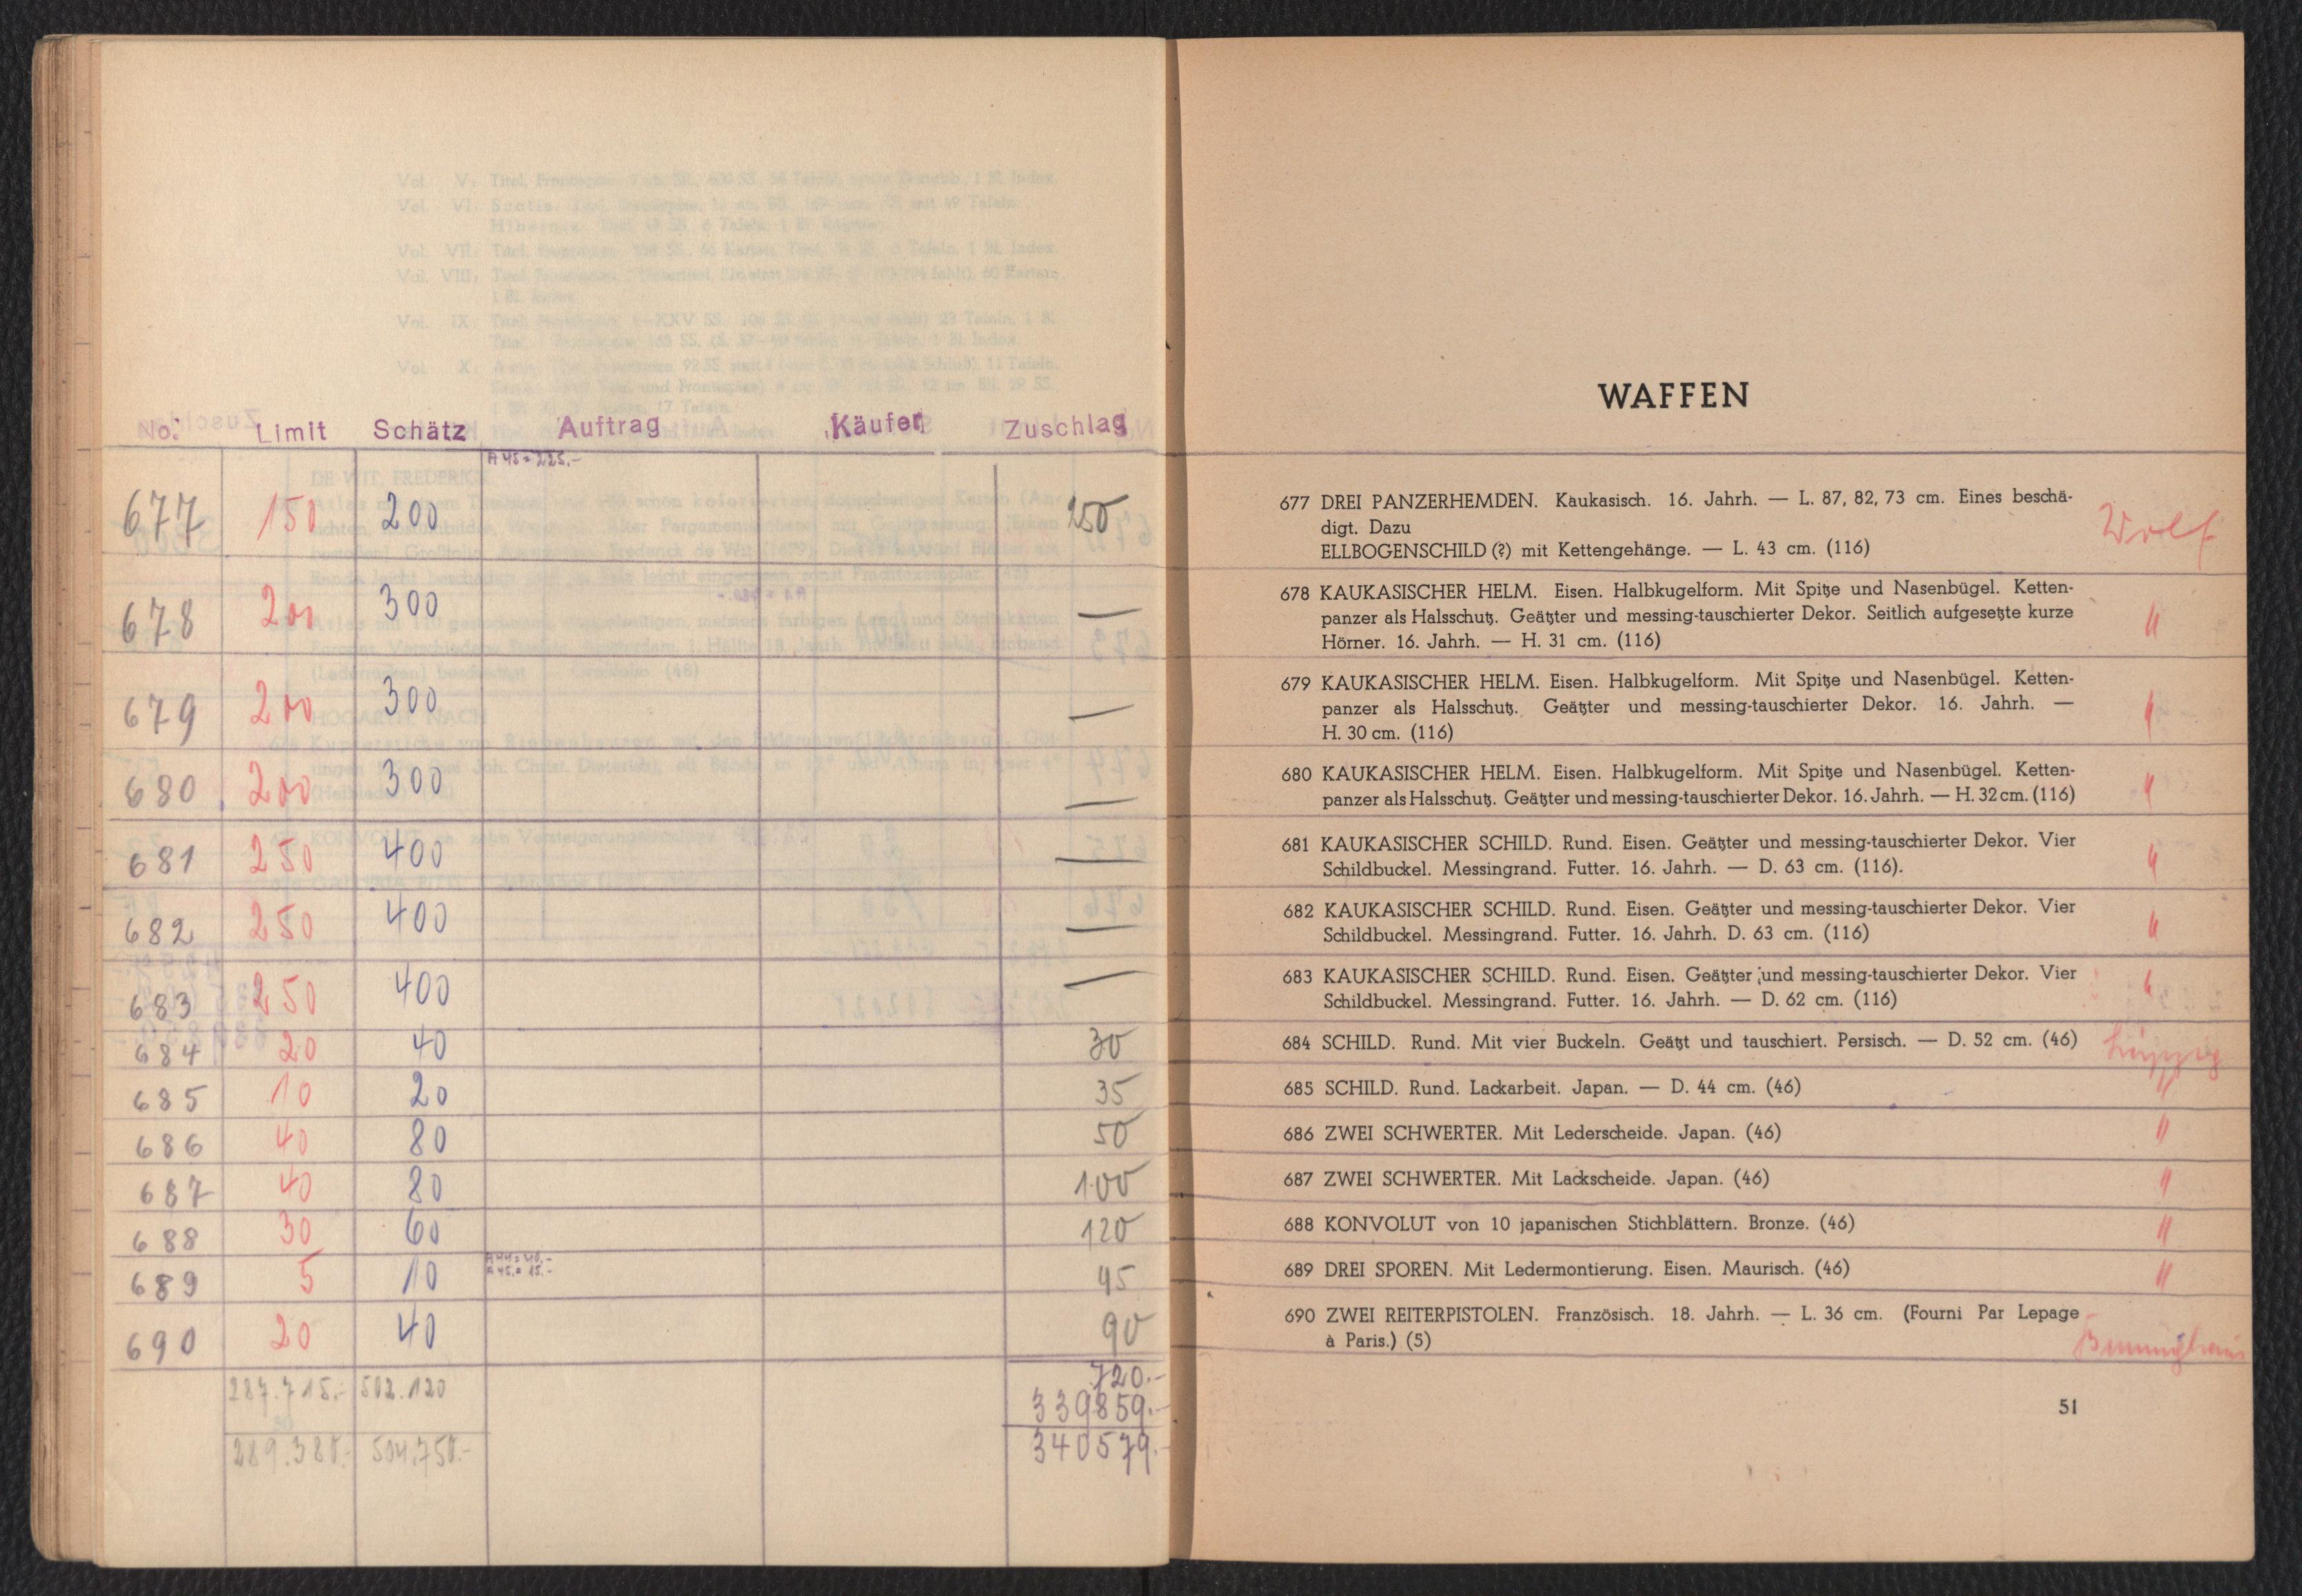 No. Limit Schätz Auftrag Käufer Zuschlag
A 45 = 225.-
677 150 200 250
678 200 300 —
679 200 300 —
680 200 300 —
681 250 400 —
682 250 400 —
683 250 400 —
684 20 40 30
685 10 20 35
686 40 80 50
687 40 80 100
688 30 60 120
A 44 = 40.-
A 45 = 15.-
689 5 10 45
690 20 40 90
287.715.- 502.120 720.-
339859.-
289.380.- 504.750.- 340579.-
WAFFEN
677 DREI PANZERHEMDEN. Kaukasisch. 16. Jahrh. — L. 87, 82, 73 cm. Eines beschä-
digt. Dazu
Wolf
ELLBOGENSCHILD (?) mit Kettengehänge. — L. 43 cm. (116)
678 KAUKASISCHER HELM. Eisen. Halbkugelform. Mit Spitze und Nasenbügel. Ketten-
panzer als Halsschutz. Geätzter und messing-tauschierter Dekor. Seitlich aufgesetzte kurze "
Hörner. 16. Jahrh. — H. 31 cm. (116)
679 KAUKASISCHER HELM. Eisen. Halbkugelform. Mit Spitze und Nasenbügel. Ketten-
panzer als Halsschutz. Geätzter und messing-tauschierter Dekor. 16. Jahrh. — "
H. 30 cm. (116)
680 KAUKASISCHER HELM. Eisen. Halbkugelform. Mit Spitze und Nasenbügel. Ketten-
panzer als Halsschutz. Geätzter und messing-tauschierter Dekor. 16. Jahrh. — H. 32 cm. (116) "
681 KAUKASISCHER SCHILD. Rund. Eisen. Geätzter und messing-tauschierter Dekor. Vier
Schildbuckel. Messingrand. Futter. 16. Jahrh. — D. 63 cm. (116). "
682 KAUKASISCHER SCHILD. Rund. Eisen. Geätzter und messing-tauschierter Dekor. Vier
Schildbuckel. Messingrand. Futter. 16. Jahrh. D. 63 cm. (116) "
683 KAUKASISCHER SCHILD. Rund. Eisen. Geätzter und messing-tauschierter Dekor. Vier "
Schildbuckel. Messingrand. Futter. 16. Jahrh. — D. 62 cm. (116)
684 SCHILD. Rund. Mit vier Buckeln. Geätzt und tauschiert. Persisch. — D. 52 cm. (46)
685 SCHILD. Rund. Lackarbeit. Japan. — D. 44 cm. (46) "
686 ZWEI SCHWERTER. Mit Lederscheide. Japan. (46) "
687 ZWEI SCHWERTER. Mit Lackscheide. Japan. (46) "
688 KONVOLUT von 10 japanischen Stichblättern. Bronze. (46) "
689 DREI SPOREN. Mit Ledermontierung. Eisen. Maurisch. (46) "
690 ZWEI REITERPISTOLEN. Französisch. 18. Jahrh. — L. 36 cm. (Fourni Par Lepage
à Paris.) (5)
51